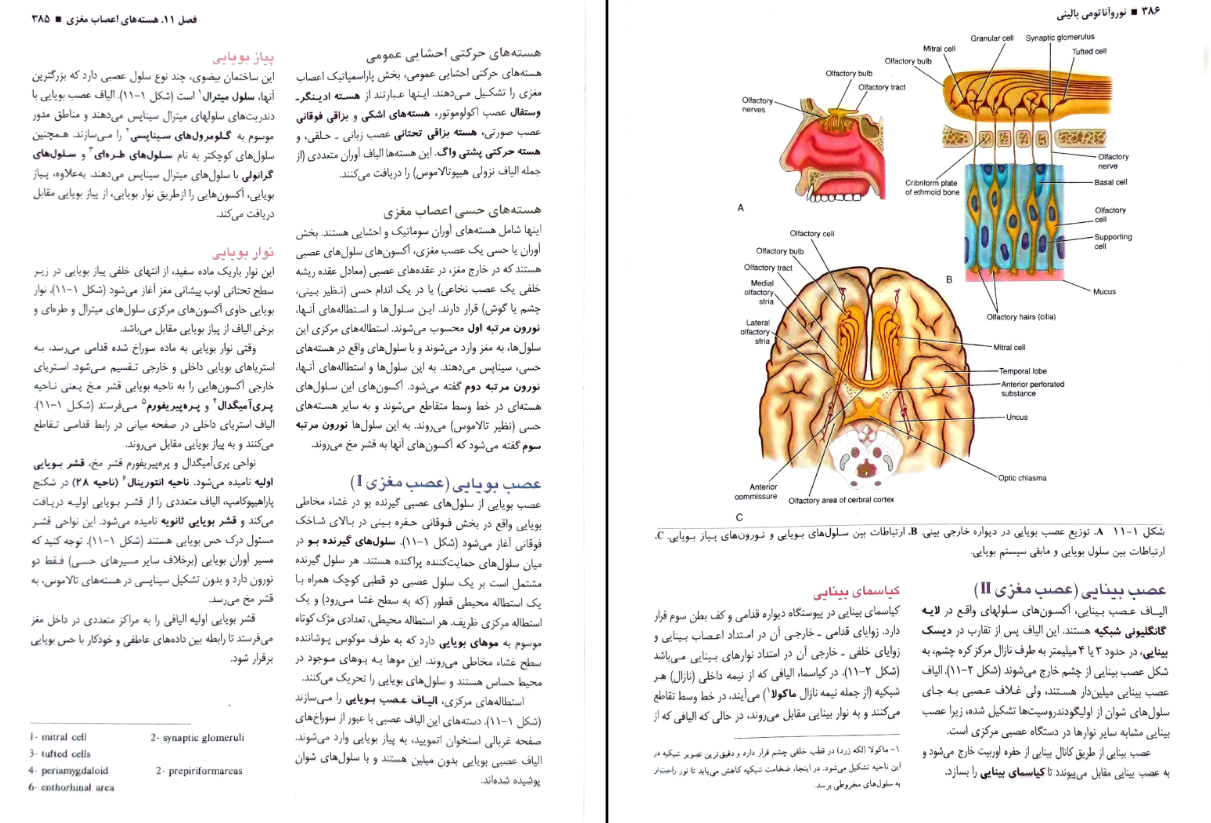 فصل ۱۱. هسته‌های اعصاب مغزی ■ ۳۸۵
هسته‌های حرکتی احشایی عمومی
هسته‌های حرکتی احشایی عمومی، بخش پاراسمپاتیک اعصاب
مغزی را تشکیل می‌دهند. اینها عبارتند از هسته ادینگر-
وستفال عصب اکولوموتور، هسته‌های اشکی و بزاقی فوقانی
عصب صورتی، هسته بزاقی تحتانی عصب زبانی ـ حلقی، و
هسته حرکتی پشتی واگ. این هسته‌ها الیاف آوران متعددی (از
جمله الیاف نزولی هیپوتالاموس) را دریافت می‌کنند.
هسته‌های حسی اعصاب مغزی
اینها شامل هسته‌های آوران سوماتیک و احشایی هستند. بخش
آوران یا حسی یک عصب مغزی، آکسون‌های سلول‌های عصبی
هستند که در خارج مغز، در عقده‌های عصبی (معادل عقده ریشه
خلفی یک عصب نخاعی) یا در یک اندام حسی (نظیر بینی،
چشم یا گوش) قرار دارند. این سلول‌ها و استطاله‌های آنها،
نورون مرتبه اول محسوب می‌شوند. استطاله‌های مرکزی این
سلول‌ها، به مغز وارد می‌شوند و با سلول‌های واقع در هسته‌های
حسی، سیناپس می‌دهند. به این سلول‌ها و استطاله‌های آنها،
نورون مرتبه دوم گفته می‌شود. آکسون‌های این سلول‌های
هسته‌ای در خط وسط متقاطع می‌شوند و به سایر هسته‌های
حسی (نظیر تالاموس) می‌روند. به این سلول‌ها نورون مرتبه
سوم گفته می‌شود که آکسون‌های آنها به قشر مخ می‌روند.
عصب بویایی (عصب مغزی I)
عصب بویایی از سلول‌های عصبی گیرنده بو در غشاء مخاطی
بویایی واقع در بخش فوقانی حفره بینی در بالای شاخک
فوقانی آغاز می‌شود (شکل ۱-۱۱). سلول‌های گیرنده بو در
میان سلول‌های حمایت‌کننده پراکنده هستند. هر سلول گیرنده
مشتمل است بر یک سلول عصبی دو قطبی کوچک همراه با
یک استطاله محیطی قطور (که به سطح غشا می‌رود) و یک
استطاله مرکزی ظریف. هر استطاله محیطی، تعدادی مژک کوتاه
موسوم به موهای بویایی دارد که به طرف موکوس پوشاننده
سطح غشاء مخاطی می‌روند. این موها به بوهای موجود در
محیط حساس هستند و سلول‌های بویایی را تحریک می‌کنند.
استطاله‌های مرکزی، الیاف عصب بویایی را می‌سازند
(شکل ۱-۱۱). دسته‌های این الیاف عصبی با عبور از سوراخ‌های
صفحه غربالی استخوان اتموئید، به پیاز بویایی وارد می‌شوند.
الیاف عصبی بویایی بدون میلین هستند و با سلول‌های شوان
پوشیده شده‌اند.
پیاز بویایی
این ساختمان بیضوی، چند نوع سلول عصبی دارد که بزرگترین
آنها، سلول میترال۱ است (شکل ۱-۱۱). الیاف عصب بویایی با
دندریت‌های سلولهای میترال سیناپس می‌دهند و مناطق مدور
موسوم به گلومرول‌های سیناپسی۲ را می‌سازند. همچنین
سلول‌های کوچکتر به نام سلول‌های طره‌ای۳ و سلول‌های
گرانولی با سلول‌های میترال سیناپس می‌دهند. به‌علاوه، پیاز
بویایی، آکسون‌هایی را ازطریق نوار بویایی، از پیاز بویایی مقابل
دریافت می‌کند.
نوار بویایی
این نوار باریک ماده سفید، از انتهای خلفی پیاز بویایی در زیر
سطح تحتانی لوب پیشانی مغز آغاز می‌شود (شکل ۱-۱۱). نوار
بویایی حاوی آکسون‌های مرکزی سلول‌های میترال و طره‌ای و
برخی الیاف از پیاز بویایی مقابل می‌باشد.
وقتی نوار بویایی به ماده سوراخ شده قدامی می‌رسد، به
استریاهای بویایی داخلی و خارجی تقسیم می‌شود. استریای
خارجی آکسون‌هایی را به ناحیه بویایی قشر مخ یعنی ناحیه
پری‌آمیگدال۴ و پره‌پیریفورم۵ می‌فرستد (شکل ۱-۱۱).
الیاف استریای داخلی در صفحه میانی در رابط قدامی تقاطع
می‌کنند و به پیاز بویایی مقابل می‌روند.
نواحی پری‌آمیگدال و پره‌پیریفورم قشر مخ، قشر بویایی
اولیه نامیده می‌شود. ناحیه انتورینال۶ (ناحیه ۲۸) در شکنج
پاراهیپوکامپ، الیاف متعددی را از قشر بویایی اولیه دریافت
می‌کند و قشر بویایی ثانویه نامیده می‌شود. این نواحی قشر
مسئول درک حس بویایی هستند (شکل ۱-۱۱). توجه کنید که
مسیر آوران بویایی (برخلاف سایر مسیرهای حسی) فقط دو
نورون دارد و بدون تشکیل سیناپسی در هسته‌های تالاموس، به
قشر مخ می‌رسد.
قشر بویایی اولیه الیافی را به مراکز متعددی در داخل مغز
می‌فرستد تا رابطه بین داده‌های عاطفی و خودکار با حس بویایی
برقرار شود.
1- mitral cell 2- synaptic glomeruli
3- tufted cells
4- periamygdaloid 2- prepiriformareas
6- enthorhinal area
۳۸۶ ■ نوروآناتومی بالینی
Olfactory bulb
Olfactory tract
Olfactory
nerves
A
Granular cell
Synaptic glomerulus
Mitral cell
Tufted cell
Olfactory bulb
Olfactory
nerve
Cribriform plate
of ethmoid bone
Basal cell
Olfactory
cell
Supporting
cell
B
Mucus
Olfactory hairs (cilia)
Olfactory cell
Olfactory bulb
Olfactory tract
Medial
olfactory
stria
Lateral
olfactory
stria
Mitral cell
Temporal lobe
Anterior perforated
substance
Uncus
Optic chiasma
Anterior
commissure
Olfactory area of cerbral cortex
C
شکل ۱-۱۱ A. توزیع عصب بویایی در دیواره خارجی بینی. B. ارتباطات بین سلول‌های بویایی و نورون‌های پیاز بویایی. C.
ارتباطات بین سلول بویایی و مابقی سیستم بویایی.
عصب بینایی (عصب مغزی II)
الیاف عصب بینایی، آکسون‌های سلولهای واقع در لایه
گانگلیونی شبکیه هستند. این الیاف پس از تقارب در دیسک
بینایی، در حدود ۳ یا ۴ میلیمتر به طرف نازال مرکز کره چشم، به
شکل عصب بینایی از چشم خارج می‌شوند (شکل ۲-۱۱). الیاف
عصب بینایی میلین‌دار هستند، ولی غلاف عصبی به جای
سلول‌های شوان از اولیگودندروسیت‌ها تشکیل شده، زیرا عصب
بینایی مشابه سایر نوارها در دستگاه عصبی مرکزی است.
عصب بینایی از طریق کانال بینایی از حفره اوربیت خارج می‌شود و
به عصب بینایی مقابل می‌پیوندد تا کیاسمای بینایی را بسازد.
کیاسمای بینایی
کیاسمای بینایی در پیوستگاه دیواره قدامی و کف بطن سوم قرار
دارد. زوایای قدامی ـ خارجی آن در امتداد اعصاب بینایی و
زوایای خلفی - خارجی آن در امتداد نوارهای بینایی می‌باشد
(شکل ۲-۱۱). در کیاسما، الیافی که از نیمه داخلی (نازال) هر
شبکیه (از جمله نیمه نازال ماکولا۱) می‌آیند، در خط وسط تقاطع
می‌کنند و به نوار بینایی مقابل می‌روند، در حالی که الیافی که از
۱- ماکولا (لکه زرد) در قطب خلفی چشم قرار دارد و دقیق‌ترین تصویر شبکیه در
این ناحیه تشکیل می‌شود. در اینجا، ضخامت شبکیه کاهش می‌یابد تا نور راحت‌تر
به سلول‌های مخروطی برسد.